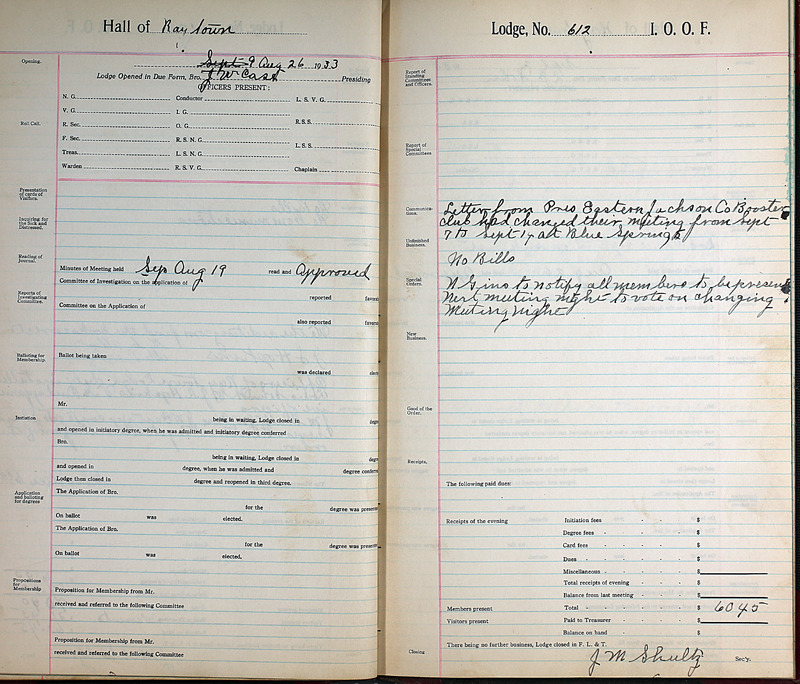 Hall of Raytown
Opening.
Sept 9 Aug 26 1933
Lodge Opened in Due Form, Bro. J W Cast Presiding
OFFICERS PRESENT:
N. G. Conductor L. S. V. G.
V. G. I. G.
Roll Call.
R. Sec. O. G. R.S.S.
F. Sec. R. S. N. G.
L. S. S.
Treas. L. S. N. G.
Warden R. S. V. G. Chaplain
Presentation of cards of Visitors.
Inquiring for the Sick and Distressed.
Reading of Journal.
Minutes of Meeting held Sep Aug 19 read and Approved
Committee of Investigation on the application of
Reports of Investigating Committee.
reported favora
Committee on the Application of
also reported favora
Balloting for Membership.
Ballot being taken
was declared elect
Mr.
Initiation
being in waiting, Lodge closed in degr
and opened in initiatory degree, when he was admitted and initiatory degree conferred
Bro.
being in waiting, Lodge closed in degr
and opened in degree, when he was admitted and degree conferre
Lodge then closed in degree and reopened in third degree.
Application and balloting for degrees
The Application of Bro.
for the degree was presente
On ballot was elected.
The Application of Bro.
for the degree was presente
On ballot was elected.
Propositions for Membership
Proposition for Membership from Mr.
received and referred to the following Committee
Proposition for Membership from Mr.
received and referred to the following Committee
Lodge, No. 612 I. O. O. F.
Report of Standing Committees and Officers.
Report of Special Committees
Communica-tions.
Letter from Pres Eastern Jackson Co Booster
club had changed their meeting from sept
7 to sept 14 at Blue Springs
Unfinished Business.
No Bills
Special Orders.
N G ins to notify all members to be present
Next meeting night to vote on changing
Meeting night
New Business.
Good of the Order.
Receipts.
The following paid dues:
Receipts of the evening Initiation fees - - - $
Degree fees - - - - $
Card fees - - - - $
Dues - - - - - $
Miscellaneous - - - - $
Total receipts of evening - - $
Balance from last meeting - - $
Members present Total - - - - - $ 6045
Visitors present Paid to Treasurer - - - $
Balance on hand - - - $
There being no further business, Lodge closed in F. L. & T.
Closing
J M Shultz Sec'y.